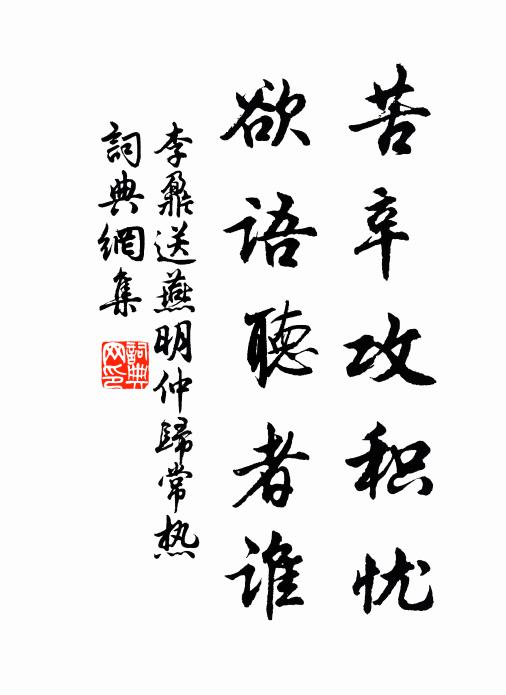 苦辛攻积忧
欲語聽者誰
李鼐送燕明仲歸常热
詞典網集
詞典网印